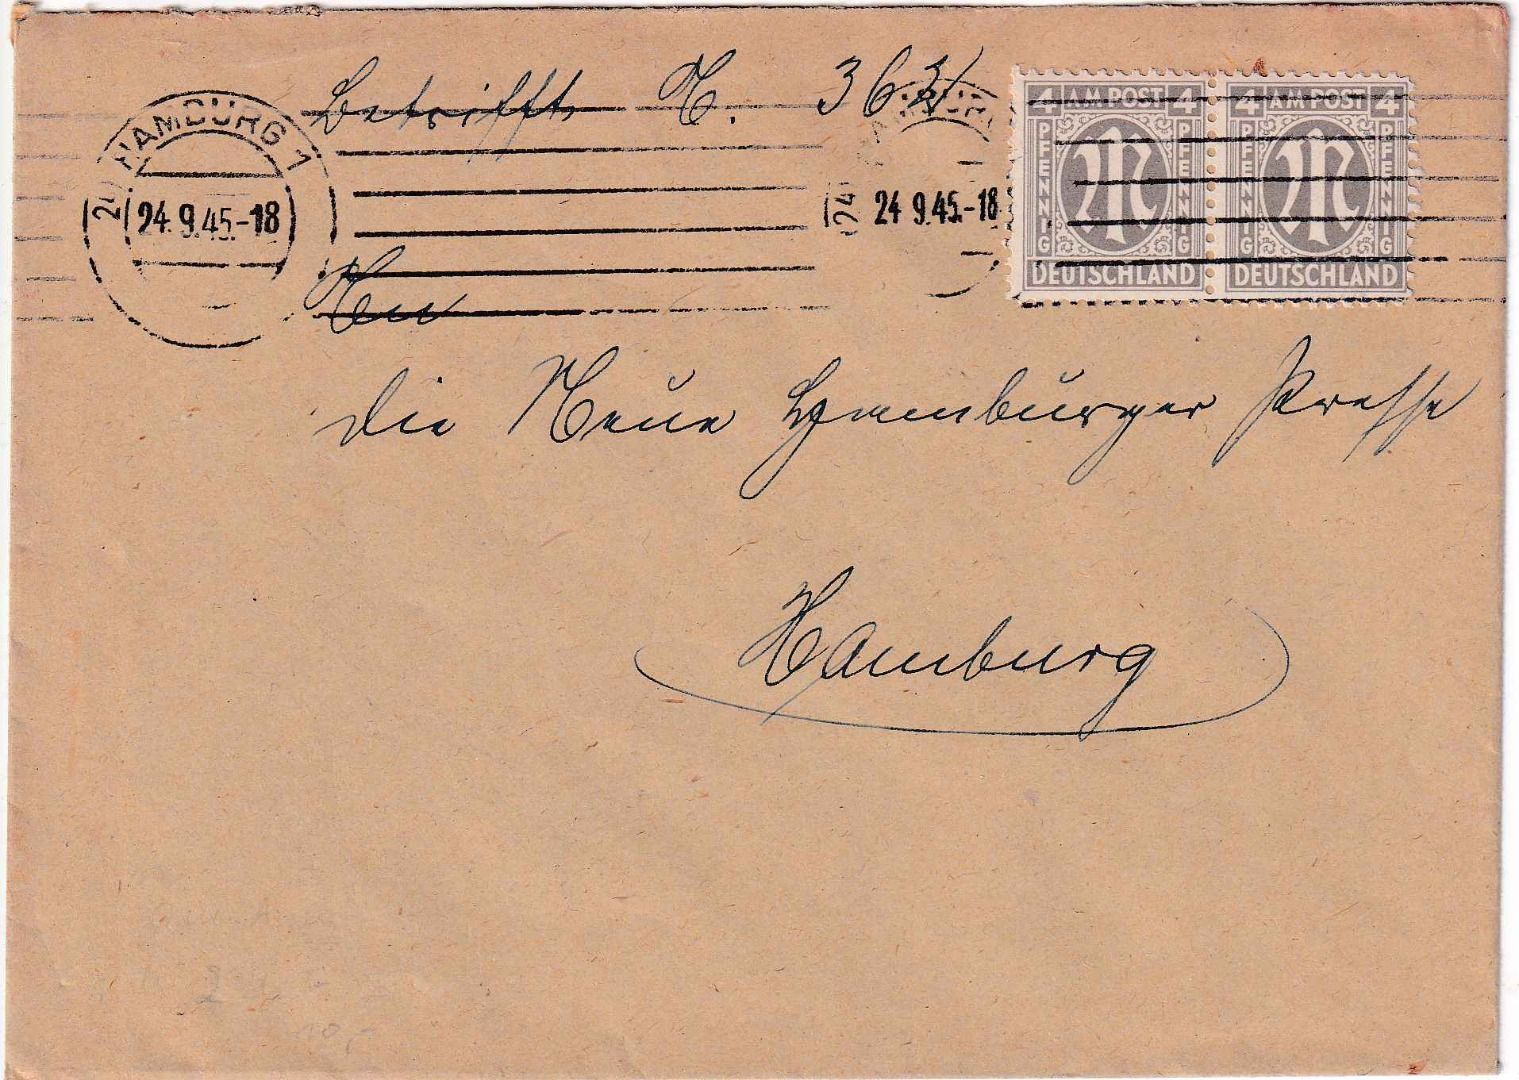 Betrifft N. 363
4 AM POST 4 4 AM POST 4
PFENNIG PFENNIG PFENNIG PFENNIG
DEUTSCHLAND DEUTSCHLAND
HAMBURG 1
24
24.9.45.-18
HAMBURG
24
24 9.45.-18
An
die Neue Hamburger Presse
Hamburg